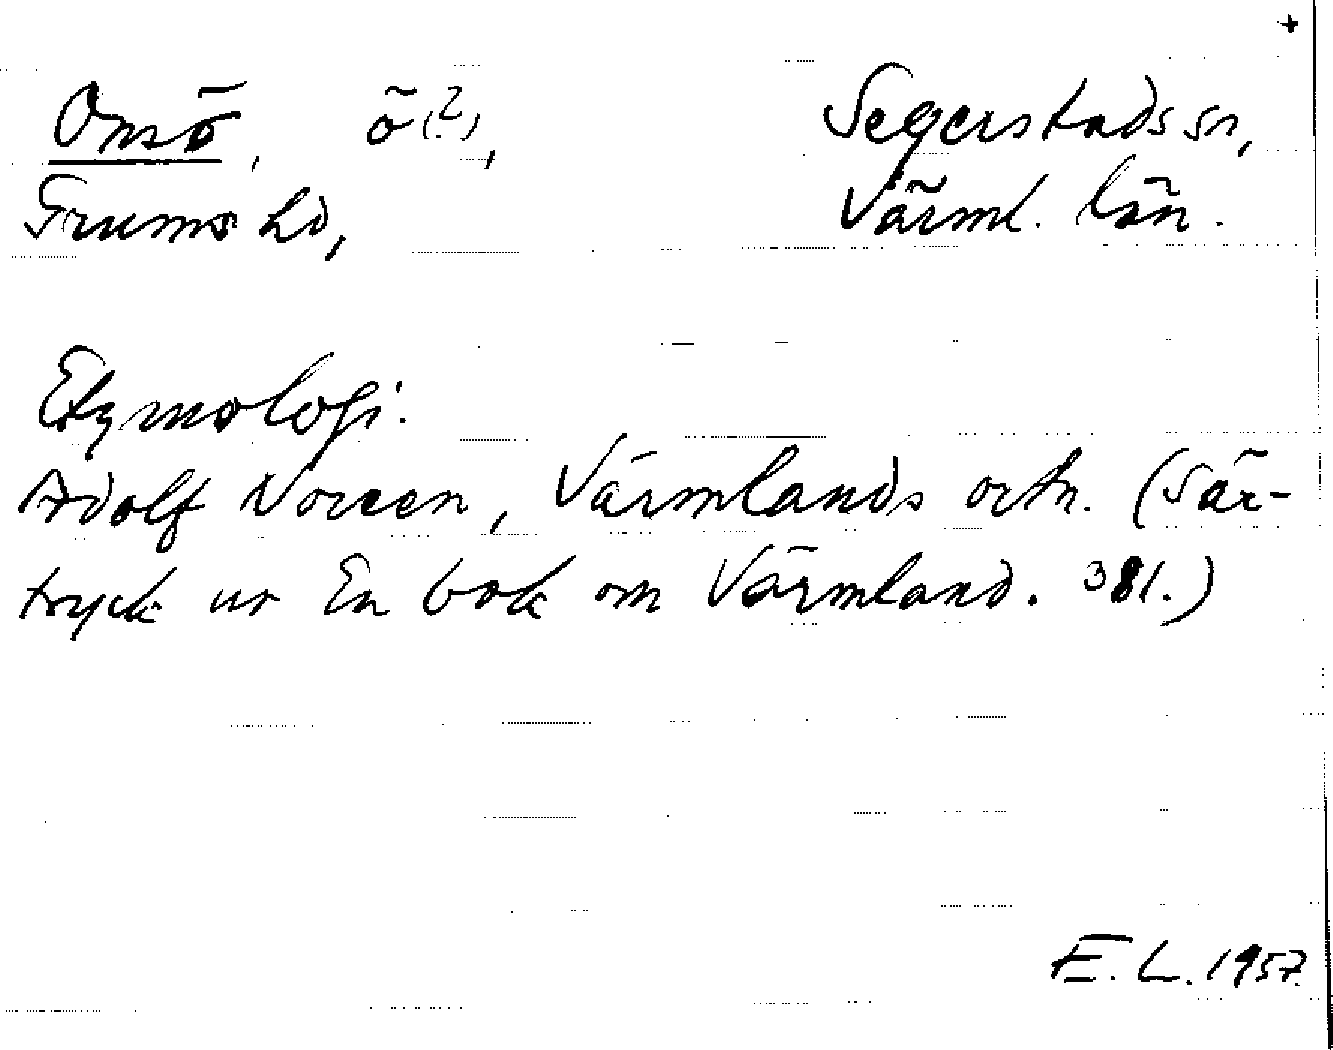 +
Omsö, ö(?), Segerstads sn,
Grums hd, Värml. län.
Etymologi.
Adolf Noreen, Värmlands ortn. (Sär-
tryck ur En bok om Värmland. 381.)
E. L. 1957.